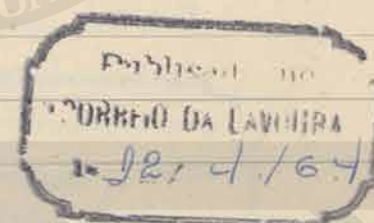 Publicado no
CORREIO DA LAVOURA
12/4/64